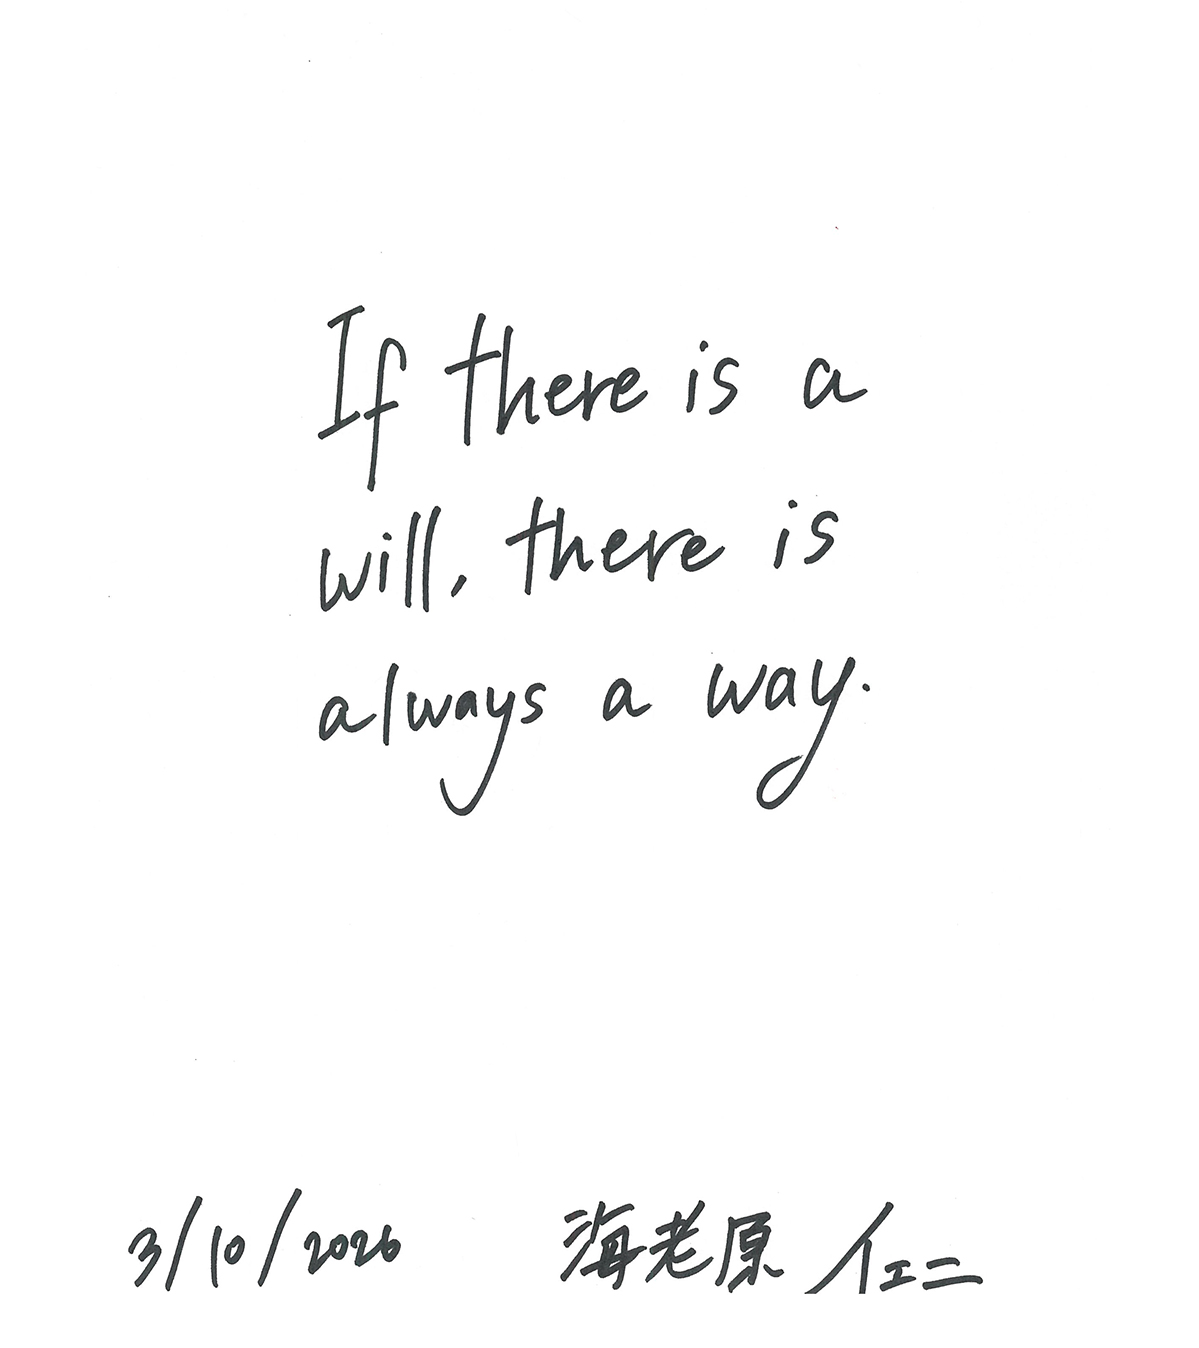 If there is a
will, there is
always a way.
3/10/2026 海老原 イェニ